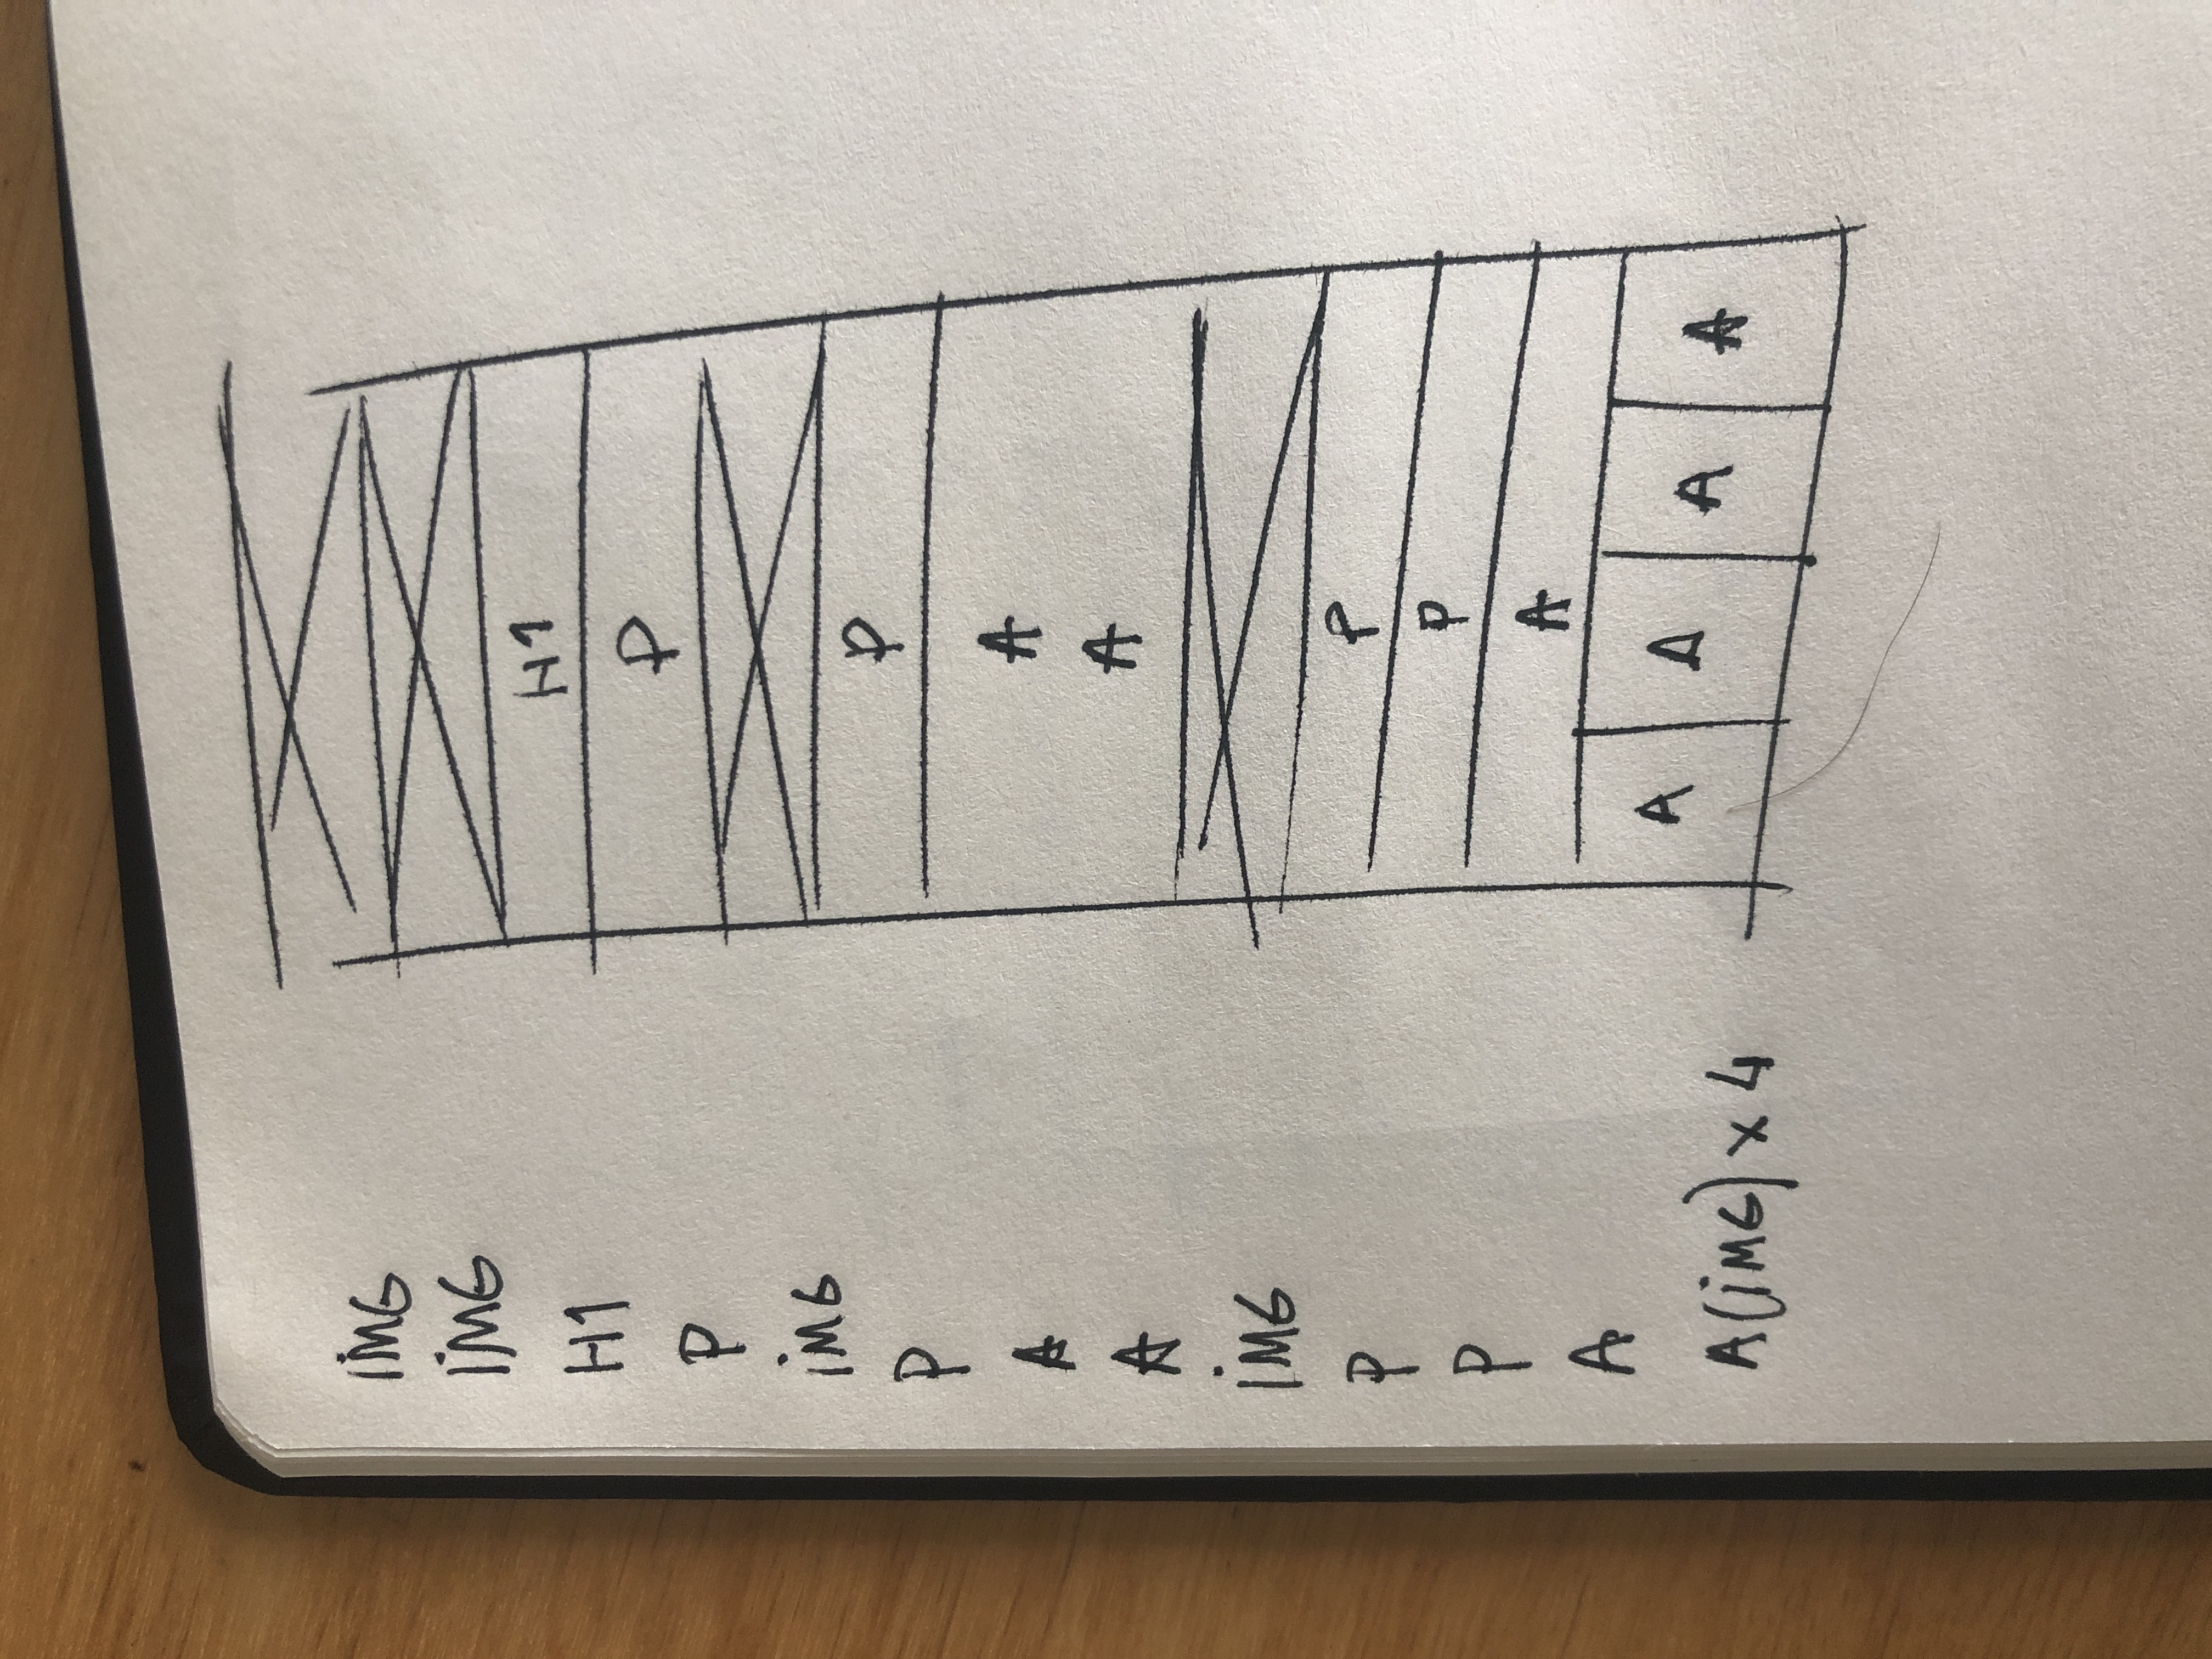 iMG
iMG
H1
P
iMG
P
A
A
iMG
P
P
A
A(iMG) x 4
H1
P
P
A
A
P
P
A
A A A A